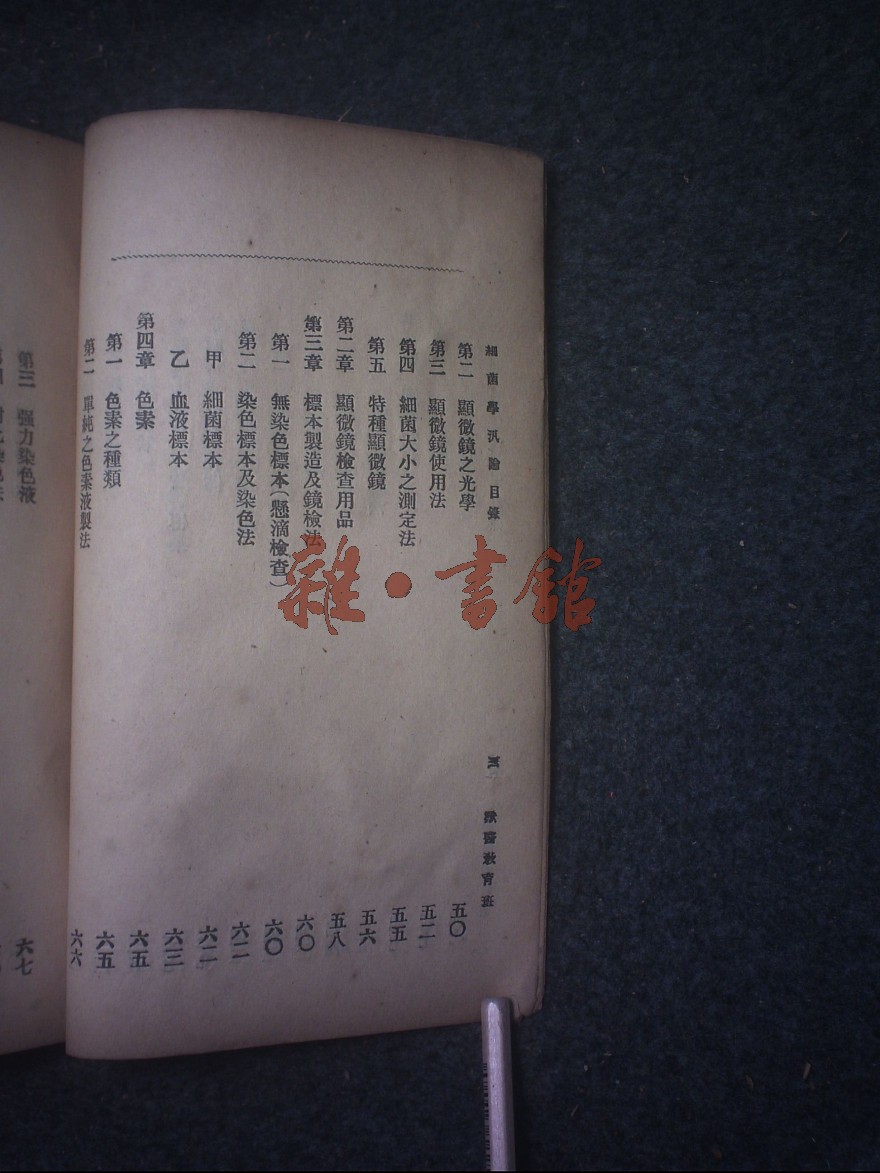 細菌學汎論目錄
獸醫敎育班
第二 顯微鏡之光學 五〇
第三 顯微鏡使用法 五二
第四 細菌大小之測定法 五五
第五 特種顯微鏡 五六
第二章 顯微鏡檢查用品 五八
第三章 標本製造及鏡檢法 六〇
第一 無染色標本(懸滴檢查) 六〇
第二 染色標本及染色法 六二
甲 細菌標本 六二
乙 血液標本 六三
第四章 色素 六五
第一 色素之種類 六五
第二 單純之色素液製法 六六
第三 强力染色液 六七
雜·書館